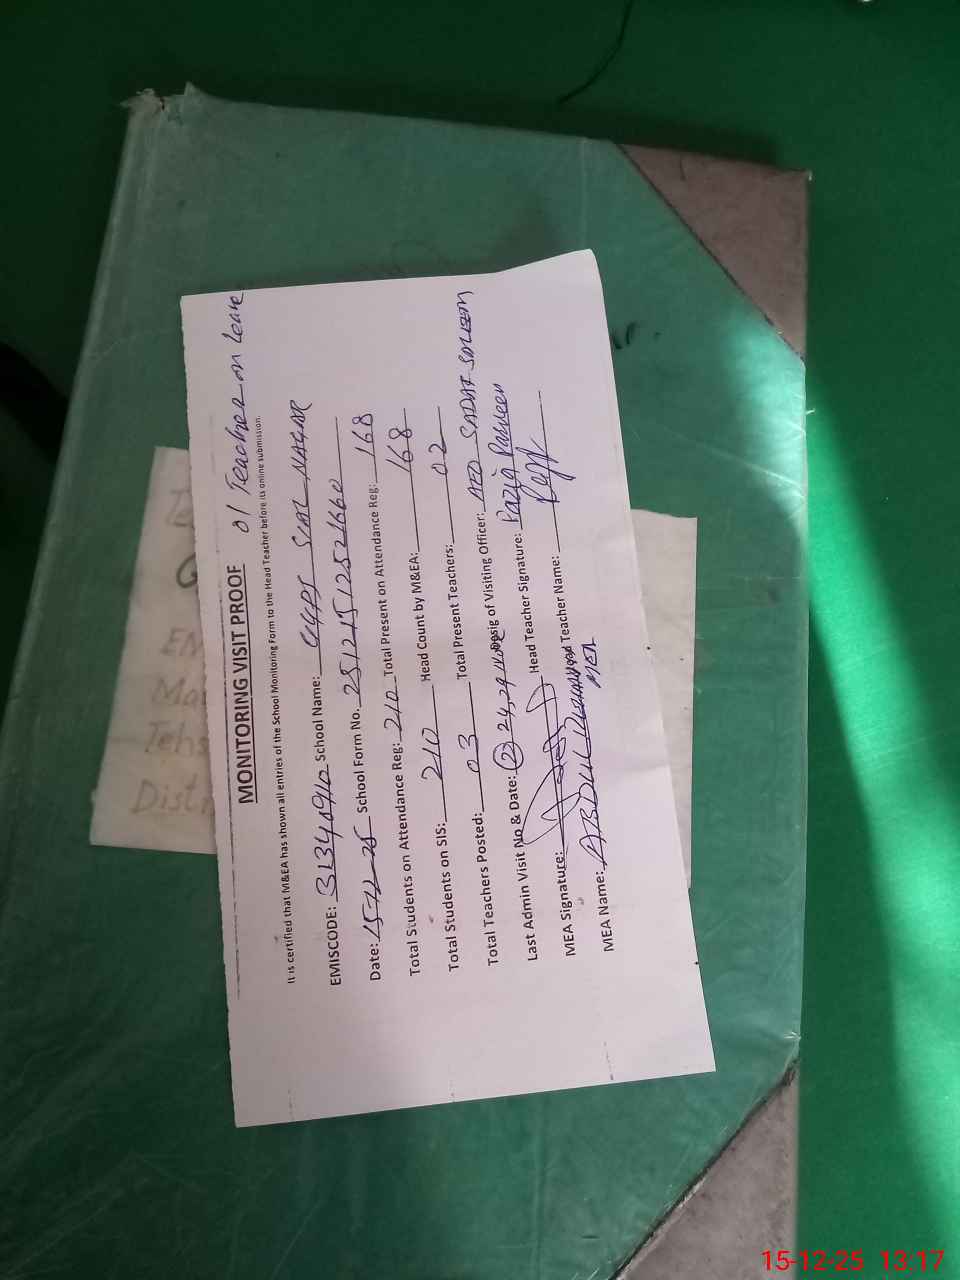 01 Teacher on Leave
MONITORING VISIT PROOF
It is certified that M&EA has shown all entries of the School Monitoring Form to the Head Teacher before its online submission.
EMISCODE: 31340910 School Name: NAGAR
Date: 15-12-25 School Form No. 25121512521660
Total Students on Attendance Reg: 210 Total Present on Attendance Reg: 168
Total Students on SIS: 210 Head Count by M&EA: 168
Total Teachers Posted: 03 Total Present Teachers: 02
Last Admin Visit No & Date: (2) 24,29 Desig of Visiting Officer: AEO
MEA Signature: Head Teacher Signature:
MEA Name: ABDUL Head Teacher Name: Parveen
MEA
Tehs
Distr
15-12-25 13:17